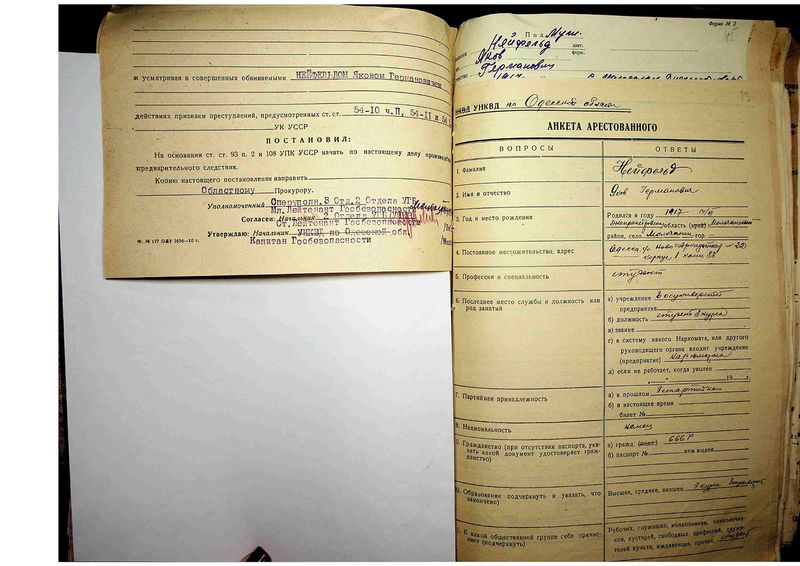 и усматривая в совершенных обвиняемым НЕЙФЕЛЬДОМ Яковом Германовичем
действиях признаки преступлений, предусмотренных ст.ст. 54-10 ч.П, 54-11 и 54
УК УССР
ПОСТАНОВИЛ:
На основании ст. ст. 93 п. 2 и 108 УПК УССР начать по настоящему делу производство
предварительного следствия.
Копию настоящего постановления направить
Областному Прокурору.
Уполномоченный Оперуполн. 3 Отд. 2 Отдела УГБ
Мл. Лейтенант Госбезопасности
Согласен: Начальник 2 Отдела УГБ
Ст. Лейтенант Госбезопасности
Утверждаю: Начальник УНКВД по Одесской обл.
Капитан Госбезопасности
Ф. № 177 ОДУ 1656—10 г.
Форма № 2
Пол Муж.
Нейфельд
Яков
Германович
НКВД УНКВД по Одесской области
АНКЕТА АРЕСТОВАННОГО
ВОПРОСЫ
ОТВЕТЫ
1. Фамилия
Нейфельд
2. Имя и отчество
Яков Германович
3. Год и место рождения
Родился в году 1917
область (край)
район, село
4. Постоянное местожительство, адрес
Одесса
корпус 1 комн 88
5. Профессия и специальность
студент
6. Последнее место службы и должность или
род занятий
а) учреждение Госуниверситет
предприятие
б) должность студент 3 курса
в) звание
г) в систему какого Наркомата, или другого
руководящего органа входит учреждение
(предприятие) Наркомпрос
д) если не работает, когда уволен
19 г.
7. Партийная принадлежность
а) в прошлом беспартийный
б) в настоящее время
билет №
8. Национальность
немец
9. Гражданство (при отсутствии паспорта, ука-
зать какой документ удостоверяет граж-
данство)
а) гражд. СССР
б) паспорт № кем выдан
10. Образование подчеркнуть и указать, что
закончено)
Высшее, среднее, низшее 3 курса
11. К какой общественной группе себя причис-
ляет (подчеркнуть)
Рабочих, служащих, колхозников, единолични-
ков, кустарей, свободных профессий, служи-
телей культа, иждивенцы, прочих студент